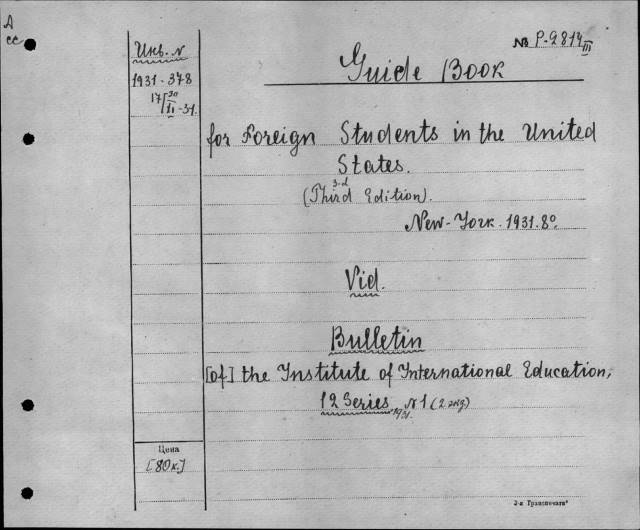 A
cc
Инв. N
1931-378
№ P-2814
III
Guide Book
for Foreign Students in the United
States.
3-d
(Third Edition).
New-York. 1931. 8°.
Vid.
Bulletin
[of] the Institute of International Education,
12 Series, 1931. N1 (2 экз)
Цена
[80к.]